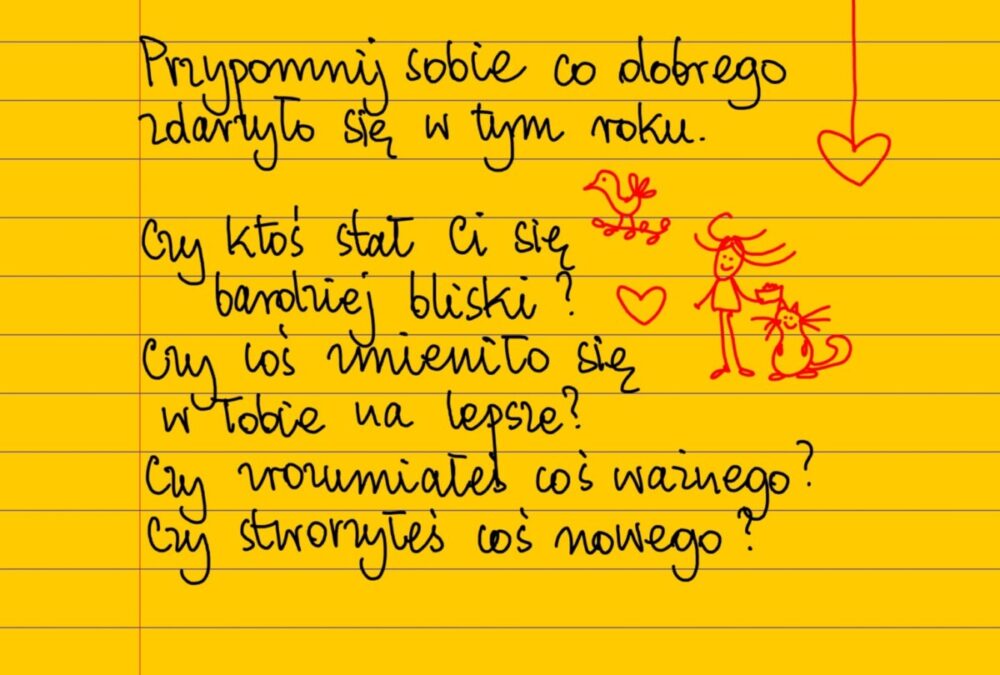 Przypomnij sobie co dobrego
zdarzyło się w tym roku.
Czy ktoś stał Ci się
bardziej bliski?
Czy coś zmieniło się
w Tobie na lepsze?
Czy zrozumiałeś coś ważnego?
Czy stworzyłeś coś nowego?